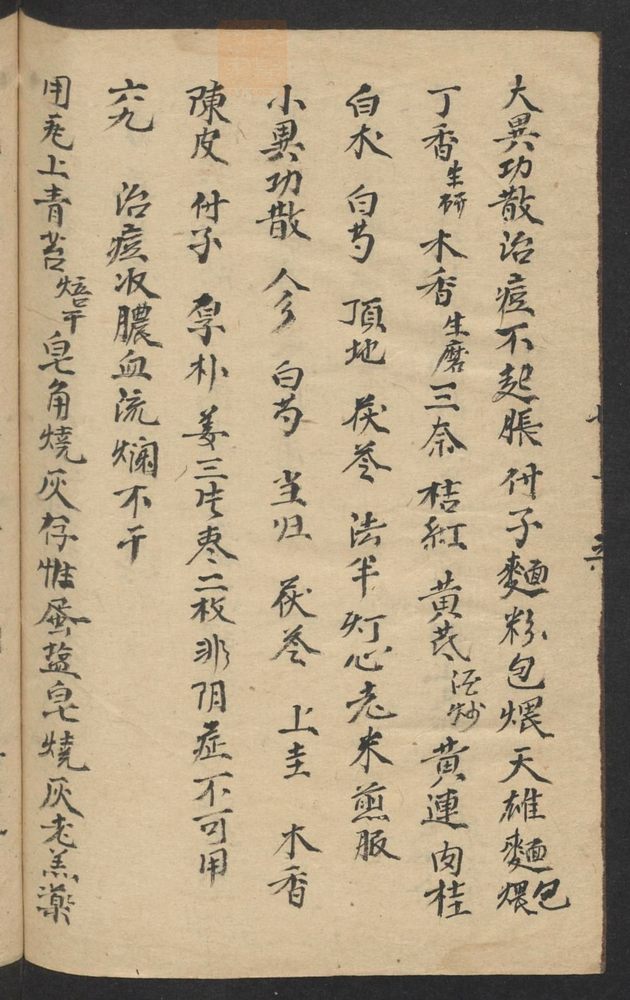 大異功散治痘不起脹付子麵粉包煨天雄麵包煨
丁香生研木香生磨三奈桔紅黄芪酒炒黄連肉桂
白术白芍頂地茯苓法半灯心老米煎服
小異功散人参白芍当归茯苓上圭木香
陳皮付子厚朴姜三片枣二枚非阴症不可用
六九治痘收膿血流爛不干
用瓦上青苔焙干皂角燒灰存性蚕䀋皂燒灰老羔藥